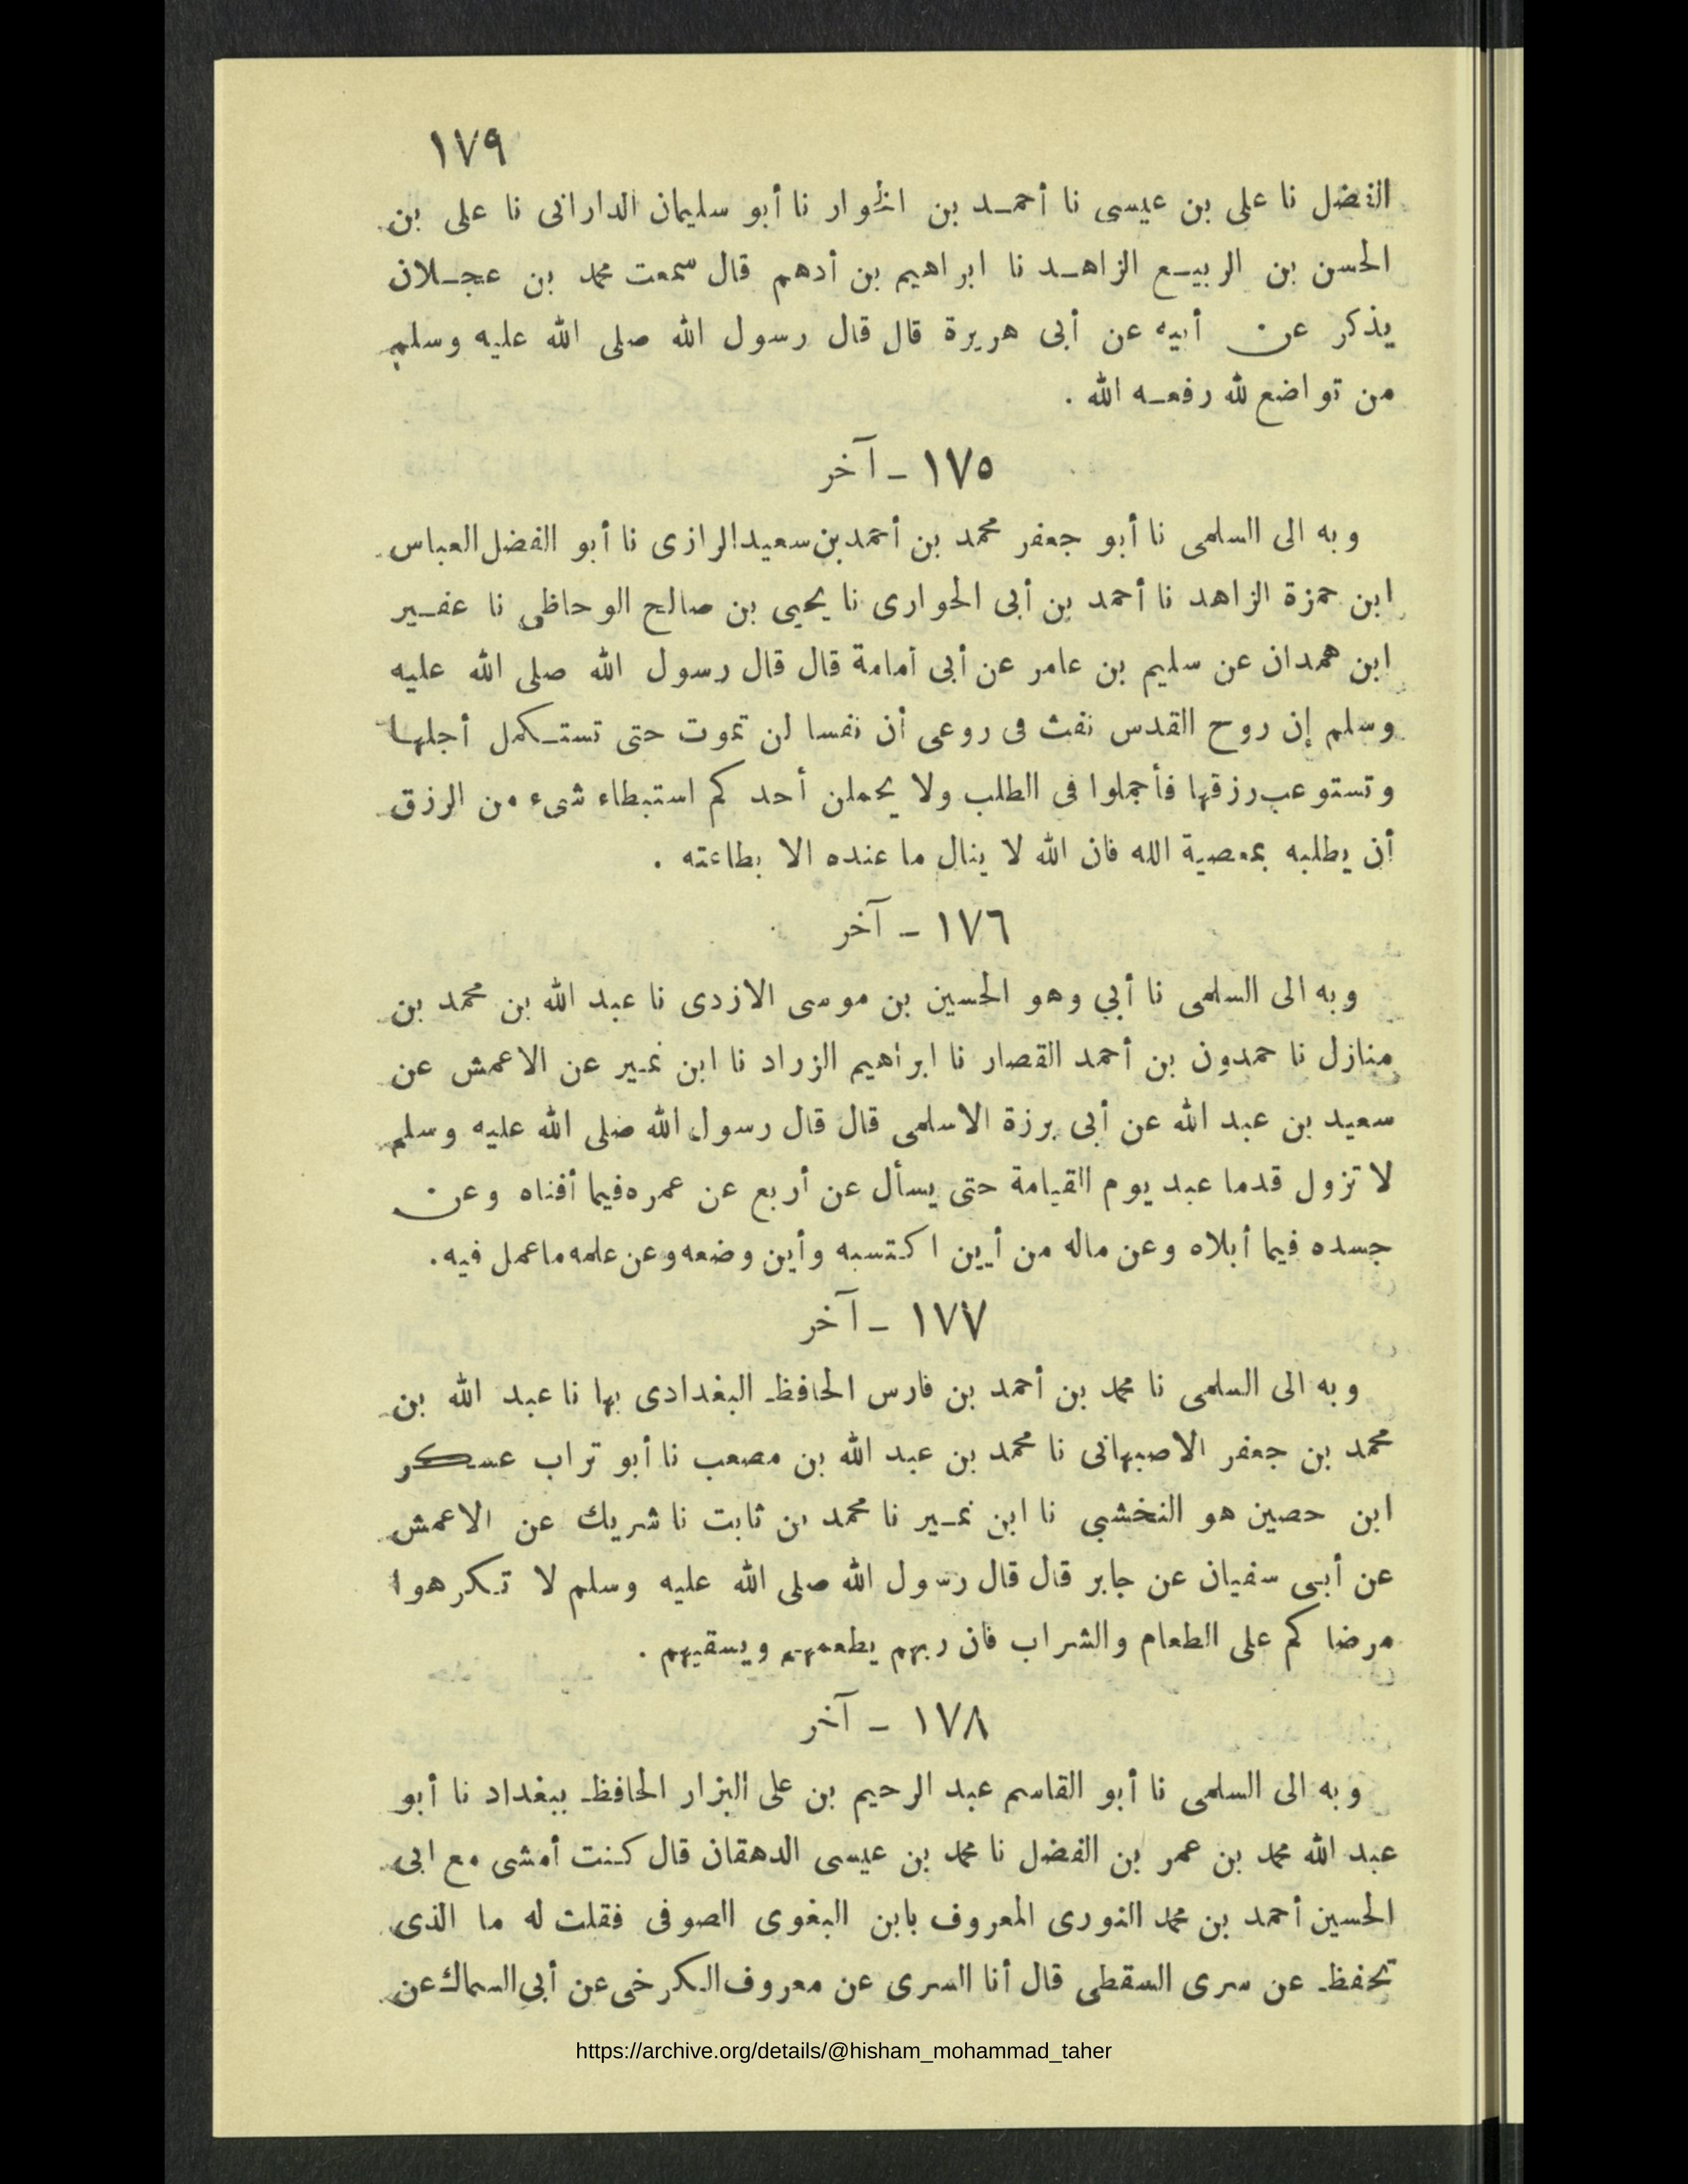 ١٧٩
الفضل نا على بن عيسى نا أحمد بن الحوار نا أبو سليمان الدارانى نا على بن
الحسن بن الربيع الزاهد نا ابراهيم بن أدهم قال سمعت محمد بن عجلان
يذكر عن أبيه عن أبى هريرة قال قال رسول الله صلى الله عليه وسلم
من تواضع لله رفعه الله .
١٧٥ - آخر
وبه الى السلمى نا أبو جعفر محمد بن أحمد بن سعيد الرازى نا أبو الفضل العباس
ابن حمزة الزاهد نا أحمد بن أبى الحوارى نا يحيى بن صالح الوحاظى نا عفير
ابن همدان عن سليم بن عامر عن أبى أمامة قال قال رسول الله صلى الله عليه
وسلم إن روح القدس نفث فى روعى أن نفسا لن تموت حتى تستكمل أجلها
وتستوعب رزقها فأجملوا فى الطلب ولا يحملن أحدكم استبطاء شىء من الرزق
أن يطلبه بمعصية الله فان الله لا ينال ما عنده الا بطاعته .
١٧٦ - آخر
وبه الى السلمى نا أبي وهو الحسين بن موسى الازدى نا عبد الله بن محمد بن
منازل نا حمدون بن أحمد القصار نا ابراهيم الزراد نا ابن نمير عن الاعمش عن
سعيد بن عبد الله عن أبى برزة الاسلمى قال قال رسول الله صلى الله عليه وسلم
لا تزول قدما عبد يوم القيامة حتى يسأل عن أربع عن عمره فيما أفناه وعن
جسده فيما أبلاه وعن ماله من أيين اكتسبه وأين وضعه وعن علمه ما عمل فيه .
١٧٧ - آخر
وبه الى السلمى نا محمد بن أحمد بن فارس الحافظ البغدادى بها نا عبد الله بن
محمد بن جعفر الاصبهانى نا محمد بن عبد الله بن مصعب نا أبو تراب عسكر
ابن حصين هو النخشبي نا ابن نمير نا محمد بن ثابت نا شريك عن الاعمش
عن أبى سفيان عن جابر قال قال رسول الله صلى الله عليه وسلم لا تكرهوا
مرضاكم على الطعام والشراب فان ربهم يطعمهم ويسقيهم .
١٧٨ - آخر
وبه الى السلمى نا أبو القاسم عبد الرحيم بن على البزار الحافظ ببغداد نا أبو
عبد الله محمد بن عمر بن الفضل نا محمد بن عيسى الدهقان قال كنت أمشى مع ابى
الحسين أحمد بن محمد النورى المعروف بابن البغوى الصوفى فقلت له ما الذى
تحفظ عن سرى السقطى قال أنا السرى عن معروف الكرخى عن أبى السماك عن
https://archive.org/details/@hisham_mohammad_taher